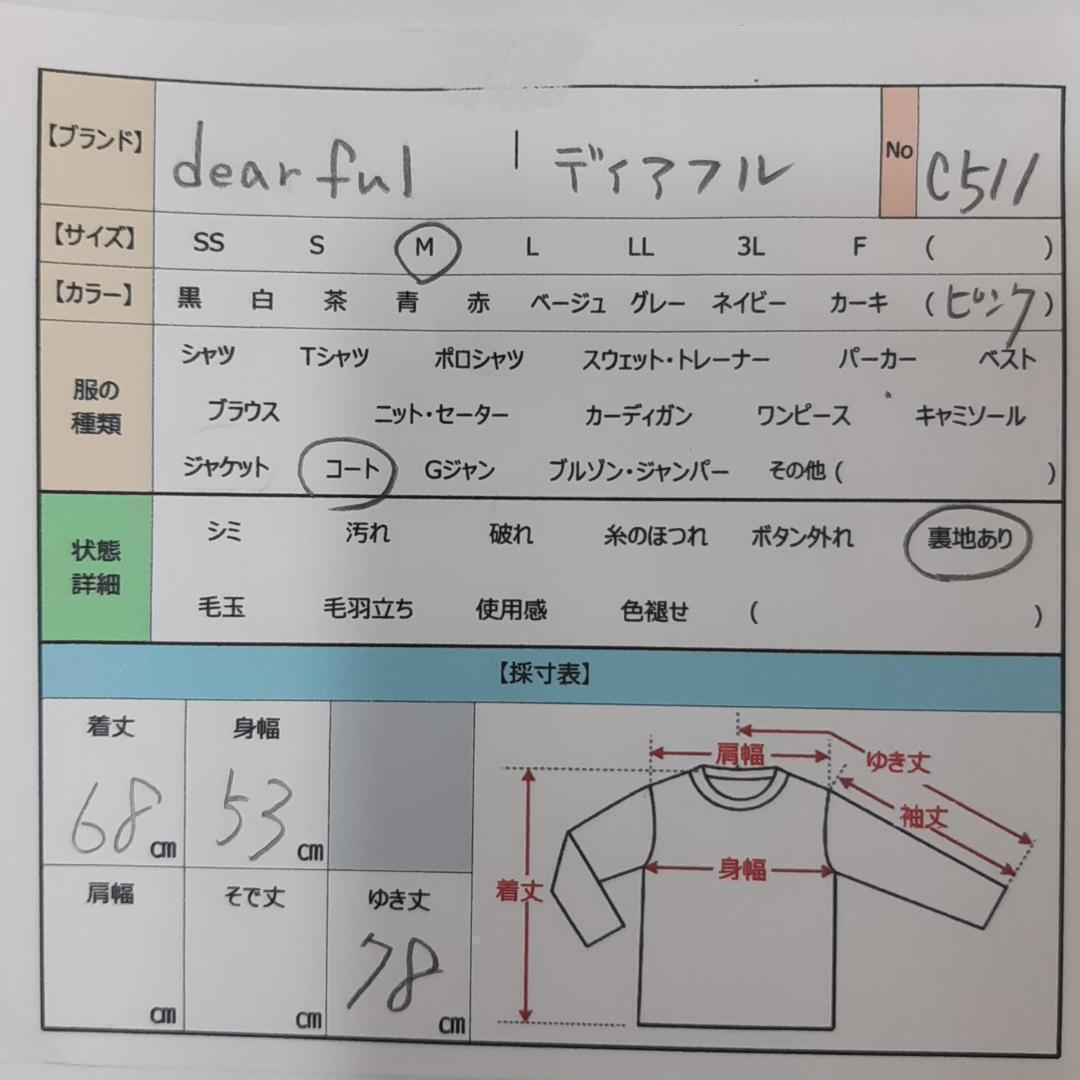 【ブランド】 dearful | ディアフル No C511
【サイズ】 SS S M L LL 3L F ( )
【カラー】 黒 白 茶 青 赤 ベージュ グレー ネイビー カーキ (ピンク)
服の種類 シャツ Tシャツ ポロシャツ スウェット・トレーナー パーカー ベスト
ブラウス ニット・セーター カーディガン ワンピース キャミソール
ジャケット コート Gジャン ブルゾン・ジャンパー その他 ( )
状態詳細 シミ 汚れ 破れ 糸のほつれ ボタン外れ 裏地あり
毛玉 毛羽立ち 使用感 色褪せ ( )
【採寸表】
着丈 身幅
68cm 53cm
肩幅 そで丈 ゆき丈
cm cm 78cm
肩幅 ゆき丈
袖丈
身幅
着丈